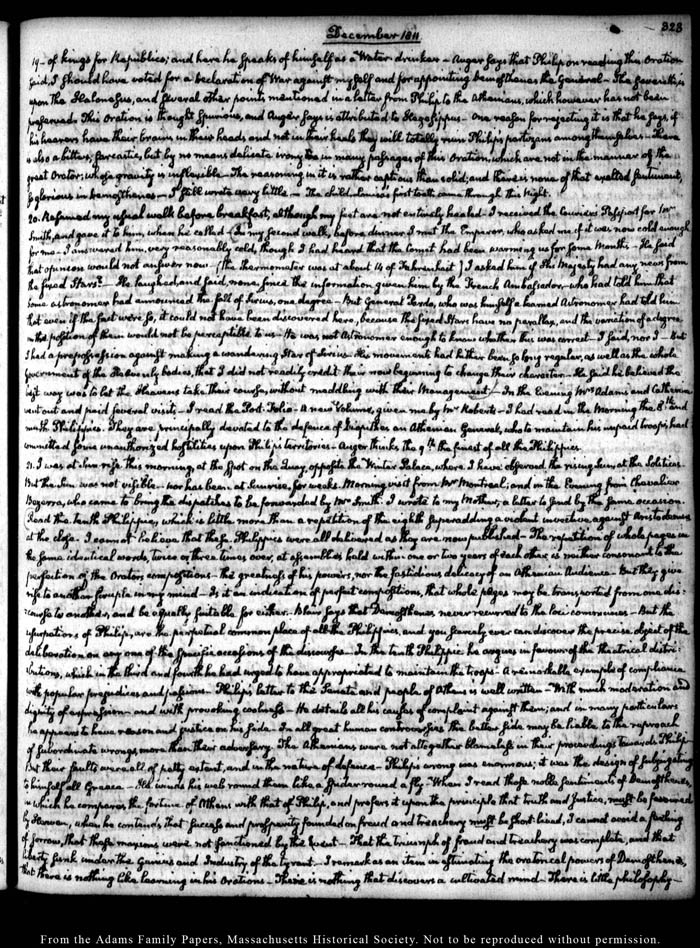 December 1811
323
19. of kings for Republics; and here he speaks of himself as a Water-drinker — Auger says that Philip on reading this Oration
said, I should have voted for a declaration of War against myself and for appointing Demosthenes the General — The seventh is
upon the Halonesus, and several other points mentioned in a letter from Philip to the Athenians, which however has not been
preserved. This Oration is thought spurious, and Auger says is attributed to Hegesippus — One reason for rejecting it is that he says, if
his hearers have their brains in their heads and not in their heels they will totally ruin Philip's partizans among themselves — There
is also a bitter, sarcastic, but by no means delicate irony too in many passages of this Oration, which are not in the manner of the
great Orator; whose gravity is inflexible — The reasoning in it is rather captious than solid; and there is none of that exalted sentiment,
so glorious in Demosthenes — I still wrote very little — The child Louisa's first tooth came through this Night.
20. Resumed my usual walk before breakfast, although my feet are not entirely healed — I received the Courier's Passport for Mr
Smith, and gave it to him, when he called — In my second walk, before dinner I met the Emperor, who asked me if it was now cold enough
for me — I answered him, very reasonably cold, though I had heard that the Comet had been warming us for some Months — He said
that opinion would not answer now (The thermometer was at about 14 of Fahrenheit) I asked him if His Majesty had any news from
the fixed Stars? — He laughed, and said, none since the information given him by the French Ambassador, who had told him that
some astronomer had announced the fall of Sirius, one degree — But General Pardo, who was himself a learned Astronomer had told him
that even if the fact were so, it could not have been discovered here, because the fixed Stars have no parallax, and the variation of a degree
in the position of them would not be perceptible to us — He was not Astronomer enough to know whether this was correct — I said, nor I — But
I had a prepossession against making a wandering Star of Sirius — His movements had hitherto been so long regular, as well as the whole
Government of the Heavenly bodies, that I did not readily credit their now beginning to change their character — He said he believed the
best way was to let the Heavens take their course, without meddling with their Management — In the Evening Mrs Adams and Catherine
went out and paid several visits — I read the Port-Folio — A new Volume, given me by Mr Roberts — I had read in the Morning the 8th and
ninth Philippics. They are principally devoted to the defence of Diopithes an Athenian General, who to maintain his unpaid troops had
committed some unauthorized hostilities upon Philip's territories — Auger thinks the 9th the finest of all the Philippics.
21. I was at sun rise this morning, at the spot on the Quay, opposite the Winter Palace, where I have observed the rising sun, at the Solstices.
But the Sun was not visible — nor has been at sunrise, for weeks. Morning visit from Mr Montreal; and in the Evening from Chevalier
Bezerra, who came to bring the dispatches to be forwarded by Mr Smith. I wrote to my Mother, a letter to send by the same occasion.
Read the tenth Philippic, which is little more than a repetition of the eighth superadding a violent invective against Aristodemus
at the close — I cannot believe that these Philippics were all delivered as they are now published — The repetition of whole pages in
the same identical words, twice or three times over, at assemblies held within one or two years of each other, is neither consonant to the
perfection of the Orator's compositions — the greatness of his powers, nor the fastidious delicacy of an Athenian Audience — But they give
rise to another scruple in my mind — Is it an indication of perfect compositions, that whole pages may be transported from one dis-
course to another, and be equally suitable for either. Blair says that Demosthenes never recurred to the loci communes — But the
usurpations of Philip, are the perpetual common place of all the Philippics, and you scarcely ever can discover the precise object of the
deliberation on any one of the specific occasions of the discourses — In the tenth Philippic he argues in favour of the theatrical distri-
butions, which in the third and fourth he had urged to have appropriated to maintain the troops — A remarkable example of compliance
with popular prejudices and passions — Philip's letter to the Senate and people of Athens is well written — With much moderation and
dignity of expression — and with provoking coolness — He details all his causes of complaint against them; and in many particulars
he appears to have reason and justice on his side — In all great human controversies the better side may be liable to the reproach
of subordinate wrongs, more than their adversary. The Athenians were not altogether blameless in their proceedings towards Philip
But their faults were all of petty extent, and in the nature of defence — Philip's wrong was enormous; it was the design of subjugating
to himself all Greece — He winds his web round them like a spider round a fly. When I read those noble sentiments of Demosthenes,
in which he compares the fortune of Athens with that of Philip, and prefers it upon the principle that truth and Justice, must be favoured
by Heaven, when he contends that success and prosperity founded on fraud and treachery must be short lived, I cannot avoid a feeling
of sorrow, that those maxims were not sanctioned by the Event — That the triumph of fraud and treachery was complete, and that
liberty sunk under the Genius and Industry of the tyrant — I remark as an item in estimating the oratorical powers of Demosthenes,
that there is nothing like learning in his Orations — There is nothing that discovers a cultivated mind — There is little philosophy —
From the Adams Family Papers, Massachusetts Historical Society. Not to be reproduced without permission.